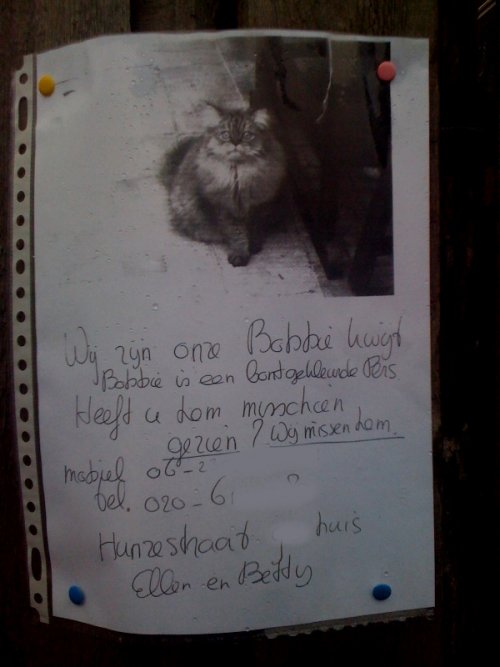 Wij zijn onze Bobbie kwijt
Bobbie is een bontgekleurde Pers
Heeft u hem misschien
gezien? Wij missen hem.
mobiel 06-2
tel. 020-6
Hunzestraat huis
Ellen en Betty